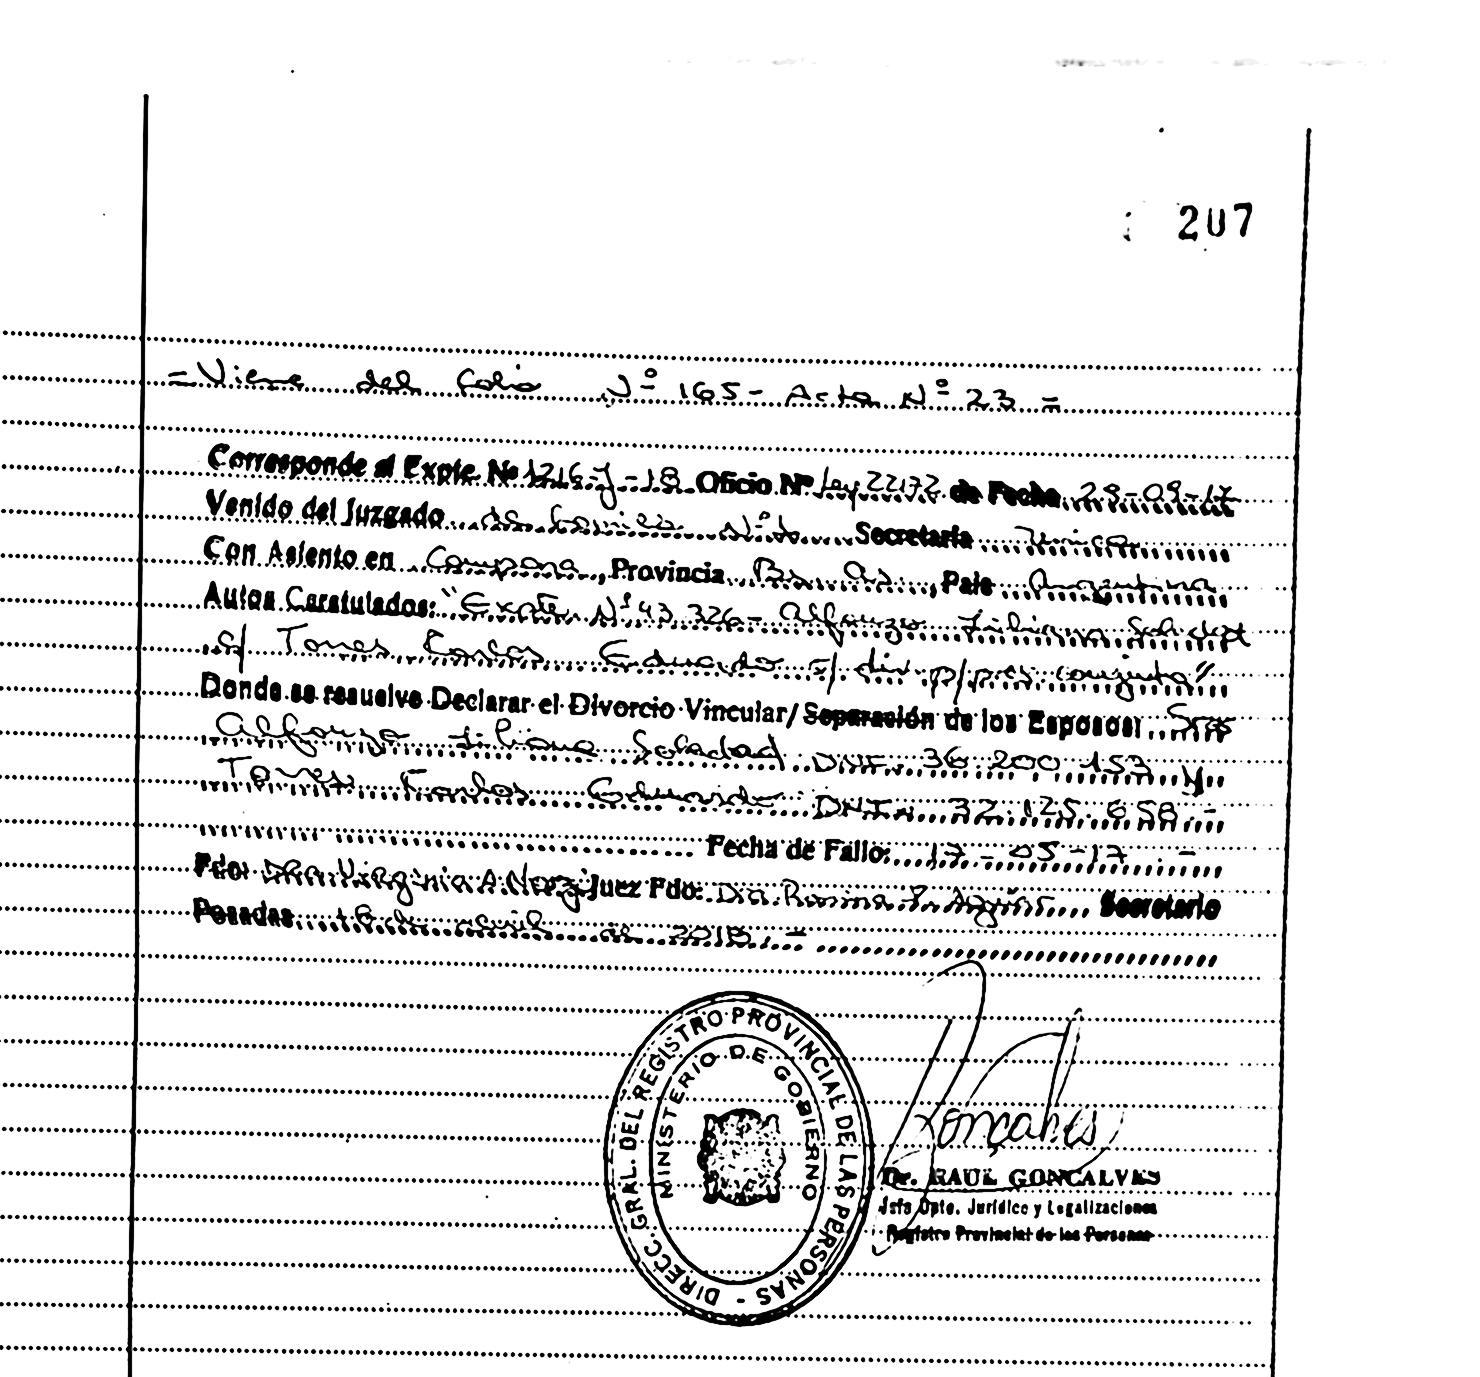 207
= Viene del folio Nº 165 - Acta Nº 23 =
Corresponde al Expte. Nº 1216-J-18 Oficio Nº Ley 22172 de Fecha 29-09-17
Venido del Juzgado de Familia Nº 1 Secretaría Unica
Con Asiento en Campana, Provincia Bs. As., País Argentina
Autos Caratulados: "Expte. Nº 43.326- Alfonzo Liliana Soledad
c/ Torres Carlos Eduardo s/ div p/pres conjunta"
Donde se resuelve Declarar el Divorcio Vincular/Separación de los Esposos: Sres
Alfonzo Liliana Soledad DNI. 36.200.153 y
Torres Carlos Eduardo DNI. 32.125.658.-
Fecha de Fallo: 17-05-17.-
Fdo: Dra Virginia A Juez Fdo: Dra. Romina Secretario
Posadas, 16 de abril de 2018.-
DIRECC. GRAL. DEL REGISTRO PROVINCIAL DE LAS PERSONAS -
MINISTERIO DE GOBIERNO
Gonçalves
Dr. RAUL GONCALVES
Jefe Dpto. Jurídico y Legalizaciones
Registro Provincial de las Personas